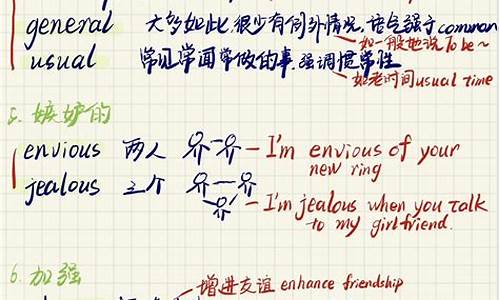 general 大多如此,很少有例外情况,语气强于common
如一般地说 to be~
usual 常见常闻常做的事,强调惯常性
如老时间 usual time
5. 嫉妒的
envious 两人 I'm envious of your
new ring
jealous 三个 I'm jealous when you talk
to my girlfriend.
6. 加强
增进友谊 enhance friendship